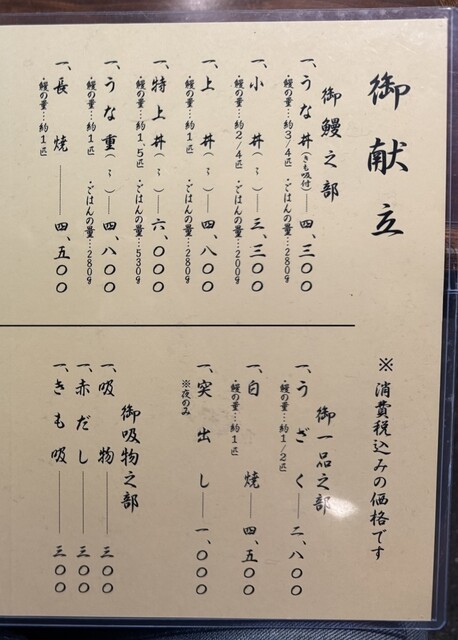 御献立
御鰻之部
一、うな丼(きも吸付)――四、三〇〇
・鰻の量…約3/4匹 ・ごはんの量…280g
一、小丼(〃)――三、三〇〇
・鰻の量…約2/4匹 ・ごはんの量…200g
一、上丼(〃)――四、八〇〇
・鰻の量…約1匹 ・ごはんの量…280g
一、特上丼(〃)――六、〇〇〇
・鰻の量…約1.5匹 ・ごはんの量…530g
一、うな重(〃)――四、八〇〇
・鰻の量…約1匹 ・ごはんの量…280g
一、長焼――四、五〇〇
・鰻の量…約1匹
※消費税込みの価格です
御一品之部
一、うざく――二、八〇〇
・鰻の量…約1/2匹
一、白焼――四、五〇〇
・鰻の量…約1匹
一、突出し――一、〇〇〇
※夜のみ
御吸物之部
一、吸物――三〇〇
一、赤だし――三〇〇
一、きも吸――三〇〇